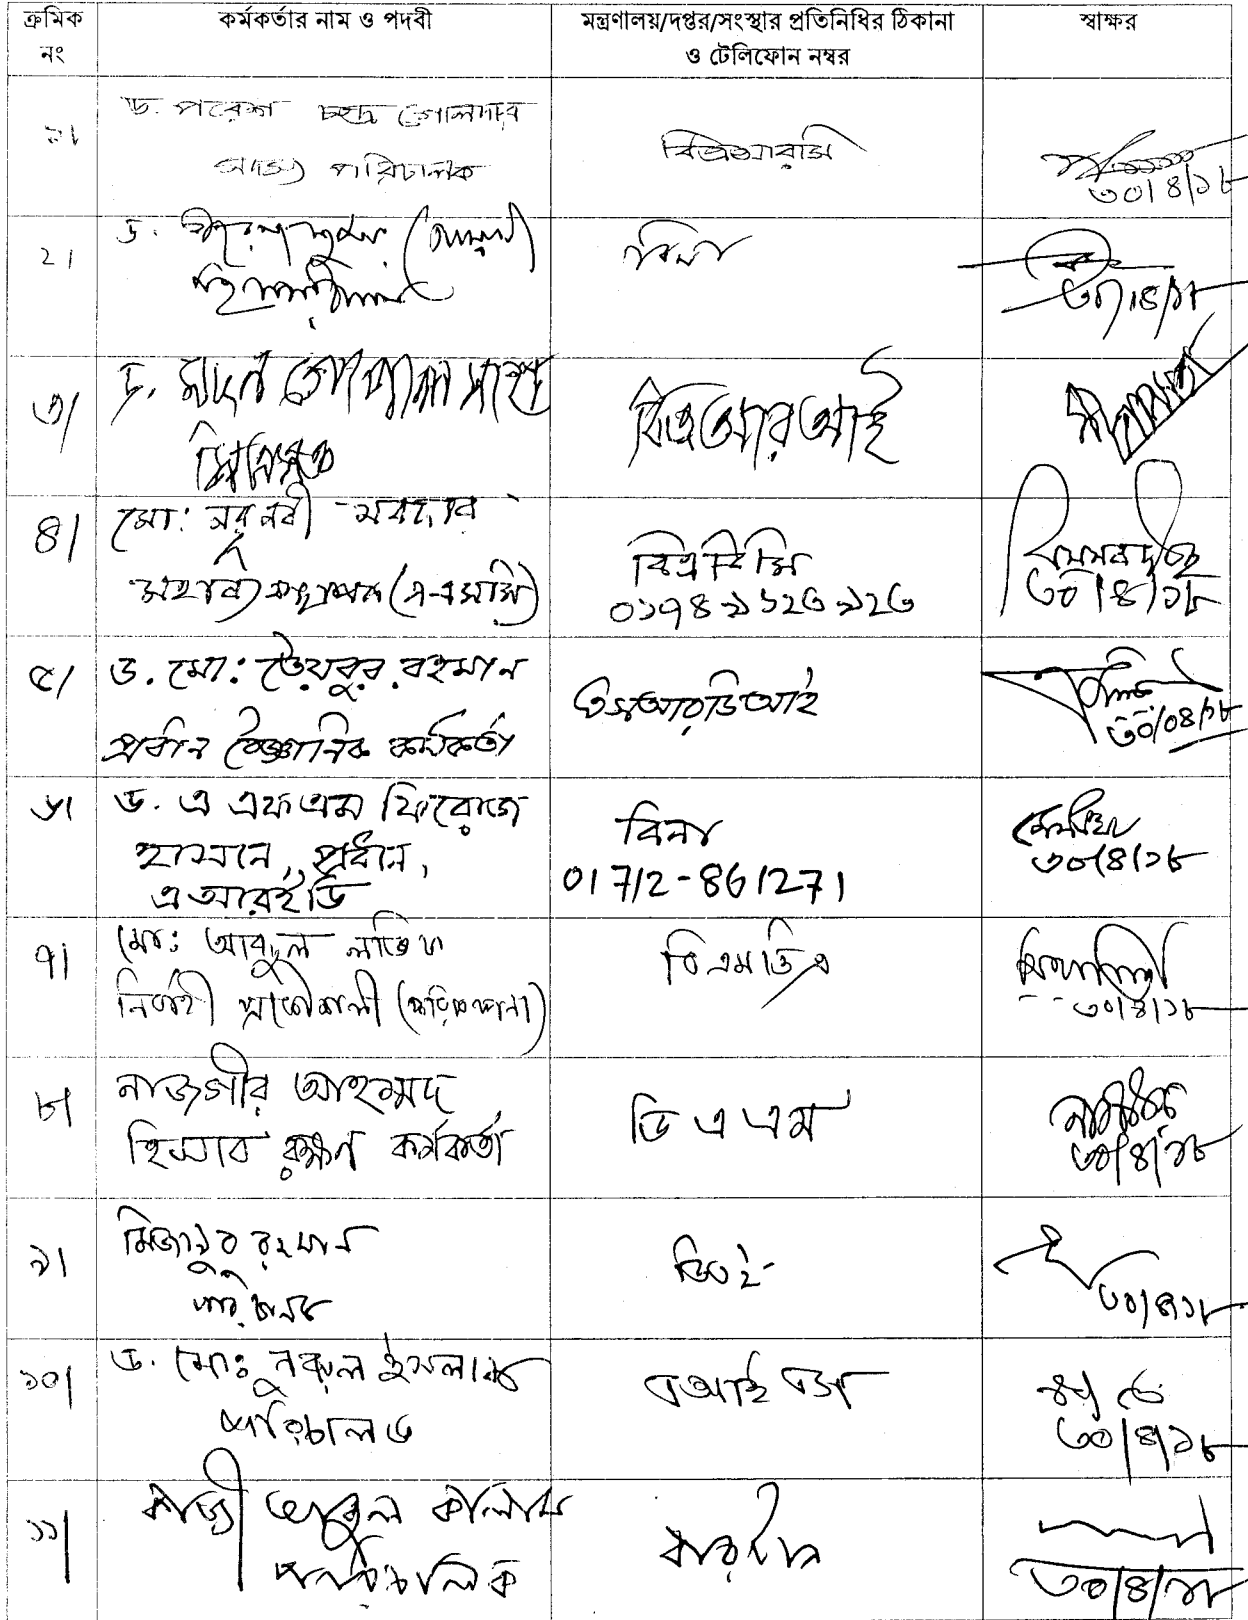 ক্রমিক নং
কর্মকর্তার নাম ও পদবী
মন্ত্রণালয়/দপ্তর/সংস্থার প্রতিনিধির ঠিকানা ও টেলিফোন নম্বর
স্বাক্ষর
১।
ড. পরেশ চন্দ্র গোলদার
সদস্য পরিচালক
বিএআরসি
৩০/৪/১৮
২।
ড.
বিনা
৩০/৪/১৮
৩/
ড.
সিএসও
বিজেআরআই
৪/
মো: নূর নবী সরদার
মহাব্যবস্থাপক (এ-এসসি)
বিএডিসি
০১৭৪৯১২৩৯২৩
৩০/৪/১৮
৫/
ড. মো: তৈয়বুর রহমান
প্রধান বৈজ্ঞানিক কর্মকর্তা
এসআরডিআই
৩০/০৪/১৮
৬।
ড. এ এফ এম ফিরোজ
হাসান, প্রধান,
এআরইডি
বিনা
01712-861271
৩০/৪/১৮
৭।
মো: আব্দুল লতিফ
নির্বাহী প্রকৌশলী (পরিকল্পনা)
বিএমডিএ
৩০/৪/১৮
৮।
নাজগীর আহম্মদ
হিসাব রক্ষণ কর্মকর্তা
ডি এ এম
৩০/৪/১৮
৯।
মিজানুর রহমান
পরিচালক
ডিএই
৩০/৪/১৮
১০।
ড. মো: নুরুল ইসলাম
পরিচালক
এআইএস
৩০/৪/১৮
১১।
কাজী আবুল কালাম
পরিচালক
বারটান
৩০/৪/১৮